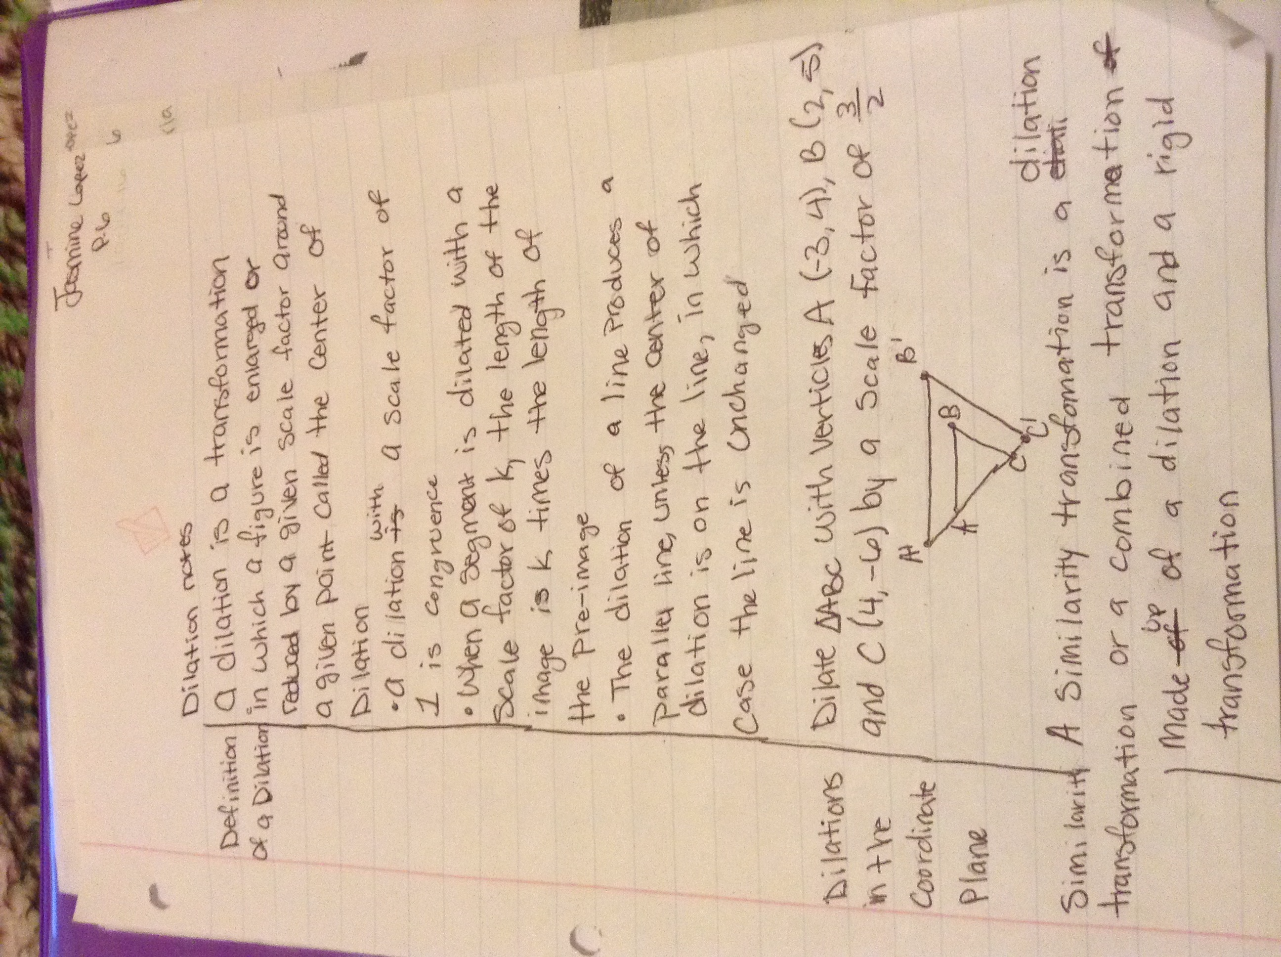 Jasmine Lopez
P.6
Dilation notes
Definition of a Dilation
a dilation is a transformation
in which a figure is enlarged or
reduced by a given scale factor around
a given point called the center of
Dilation
• a dilation with a scale factor of
1 is congruence
• when a segment is dilated with a
scale factor of k, the length of the
image is k times the length of
the Pre-image
• The dilation of a line produces a
parallel line, unless the center of
dilation is on the line, in which
case the line is unchanged
Dilations
in the
Coordinate
Plane
Dilate △ABC with verticles A (-3, 4), B (2, 5)
and C (4, -6) by a scale factor of 3/2
A' B'
A B
C C'
Similarity A Similarity transfomation is a dilation
transformation or a combined transformation
made up of a dilation and a rigid
transformation